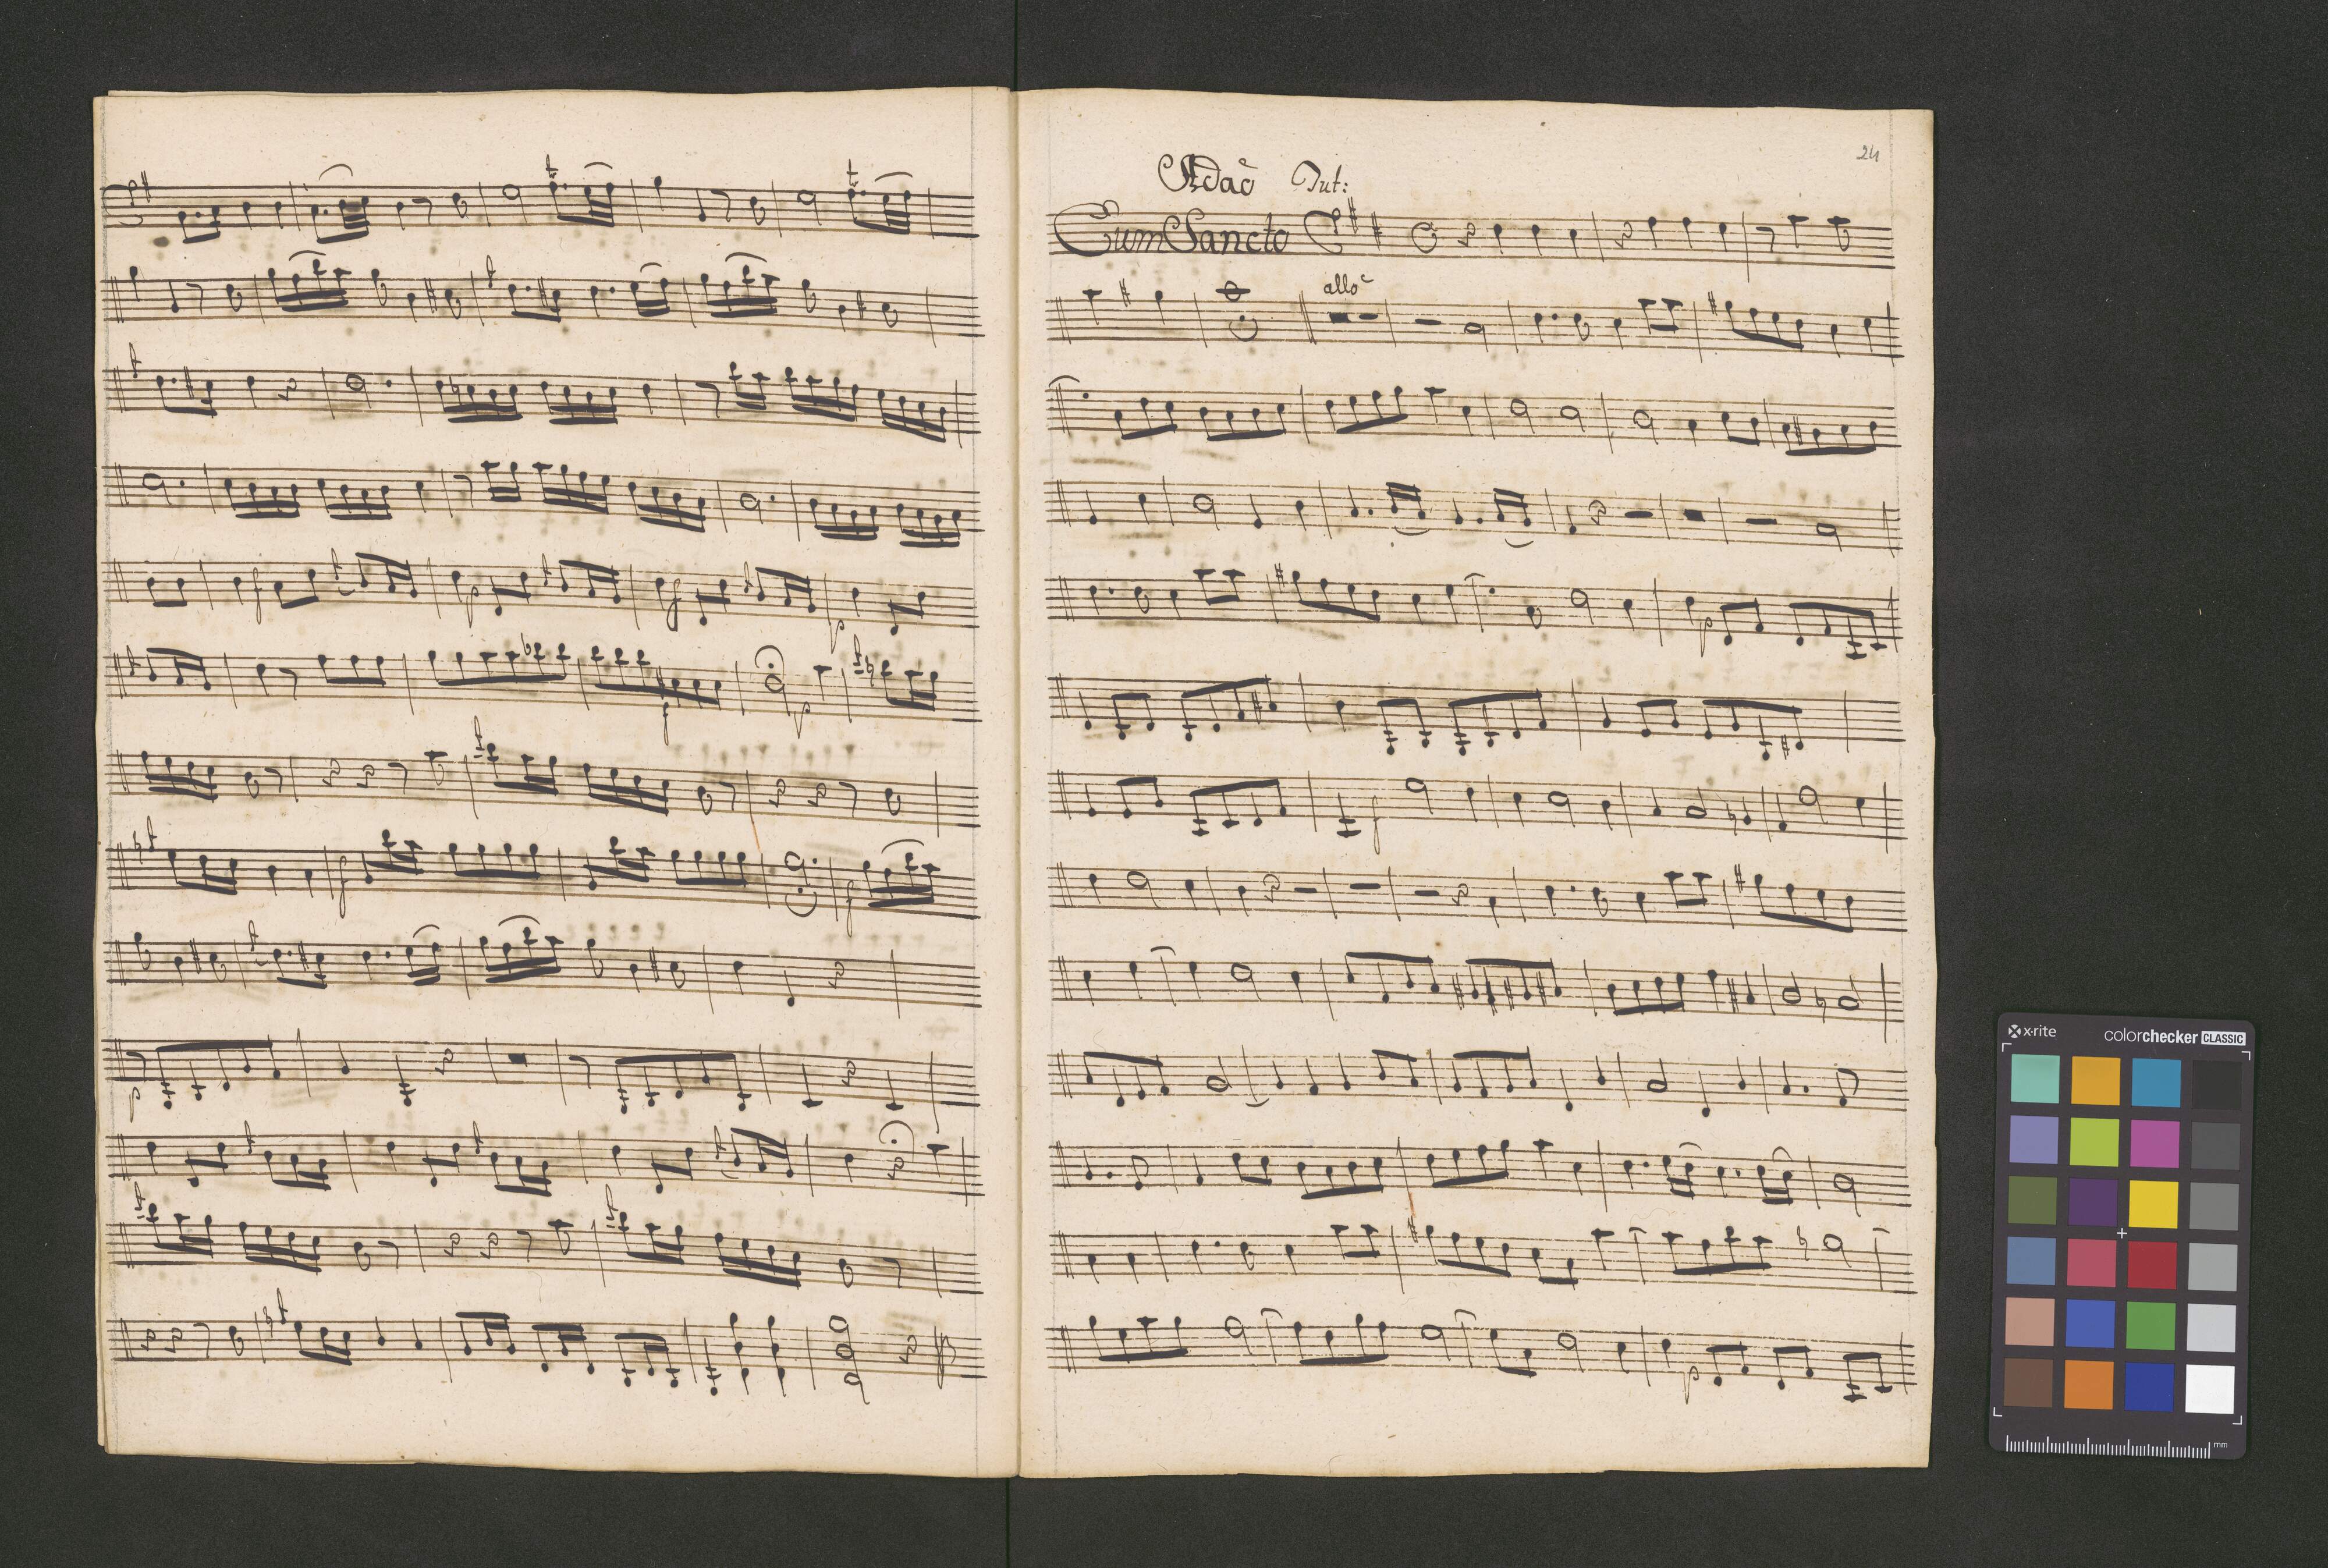 24
Adaõ Tut:
Cum Sancto
allo
f p f p
f p
f f
p
p
f
p
x-rite colorchecker CLASSIC
mm